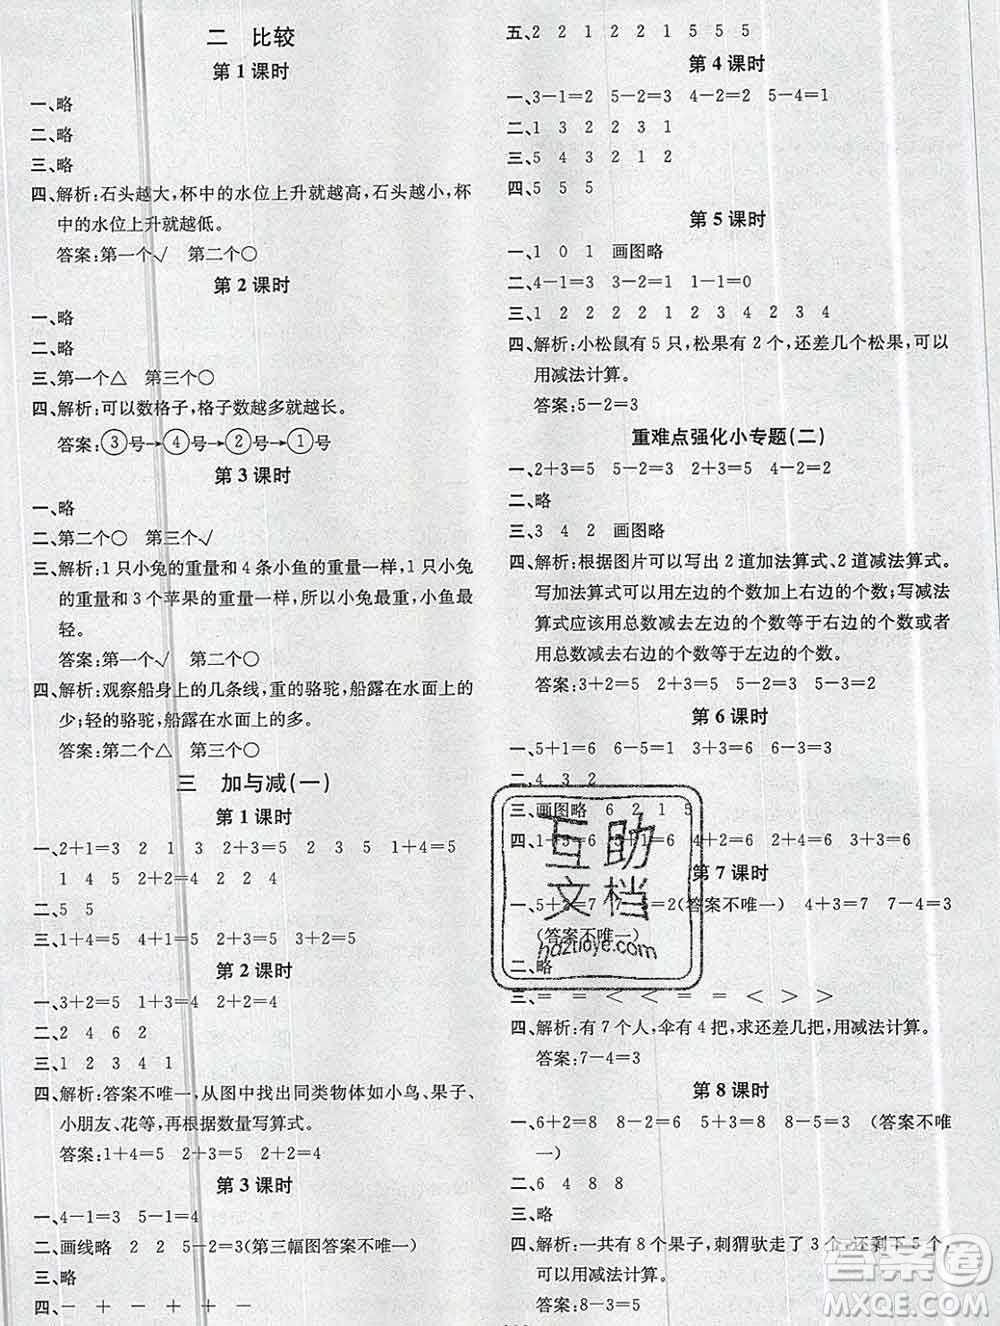 二 比较
第1课时
一、略
二、略
三、略
四、解析:石头越大,杯中的水位上升就越高,石头越小,杯
中的水位上升就越低。
答案:第一个√ 第二个○
第2课时
一、略
二、略
三、第一个△ 第三个○
四、解析:可以数格子,格子数越多就越长。
答案:③号→④号→②号→①号
第3课时
一、略
二、第二个○ 第三个√
三、解析:1只小兔的重量和4条小鱼的重量一样,1只小兔
的重量和3个苹果的重量一样,所以小兔最重,小鱼最
轻。
答案:第一个√ 第二个○
四、解析:观察船身上的几条线,重的骆驼,船露在水面上的
少;轻的骆驼,船露在水面上的多。
答案:第二个△ 第三个○
三 加与减(一)
第1课时
一、2+1=3 2 1 3 2+3=5 2 3 5 1+4=5
1 4 5 2+2=4 2 2 4
二、5 5
三、1+4=5 4+1=5 2+3=5 3+2=5
第2课时
一、3+2=5 1+3=4 2+2=4
二、2 4 6 2
三、1 2 3 4 1
四、解析:答案不唯一,从图中找出同类物体如小鸟、果子、
小朋友、花等,再根据数量写算式。
答案:1+4=5 2+3=5 2+2=4
第3课时
一、4-1=3 5-1=4
二、画线略 2 2 5-2=3(第三幅图答案不唯一)
三、略
四、- + - + + -
五、2 2 1 2 2 1 5 5 5
第4课时
一、3-1=2 5-2=3 4-2=2 5-4=1
二、1 3 2 2 3 1
三、5 4 3 2 1 2
四、5 5 5
第5课时
一、1 0 1 画图略
二、4-1=3 3-2=1 1-1=0
三、1 2 2 2 1 2 3 4 2 3 4
四、解析:小松鼠有5只,松果有2个,还差几个松果,可以
用减法计算。
答案:5-2=3
重难点强化小专题(二)
一、2+3=5 5-3=2 2+3=5 4-2=2
二、略
三、3 4 2 画图略
四、解析:根据图片可以写出2道加法算式、2道减法算式。
写加法算式可以用左边的个数加上右边的个数;写减法
算式应该用总数减去左边的个数等于右边的个数或者
用总数减去右边的个数等于左边的个数。
答案:3+2=5 2+3=5 5-2=3 5-3=2
第6课时
一、5+1=6 6-5=1 3+3=6 6-3=3
二、4 3 2
三、画图略 6 2 1 5
四、1+3=4 3+1=4 4+2=6 2+4=6 3+3=6
第7课时
一、5+2=7 7-5=2(答案不唯一) 4+3=7 7-4=3
(答案不唯一)
二、略
三、= = < < = = < > >
四、解析:有7个人,伞有4把,求还差几把,用减法计算。
答案:7-4=3
第8课时
一、6+2=8 8-2=6 5+3=8 8-5=3 (答案不唯
一)
二、6 4 8 8
三、略
四、解析:一共有8个果子,刺猬驮走了3个,还剩下5个,
可以用减法计算。
答案:8-3=5
互助
文档
hdzuoye.com
答案圈
MXQE.COM